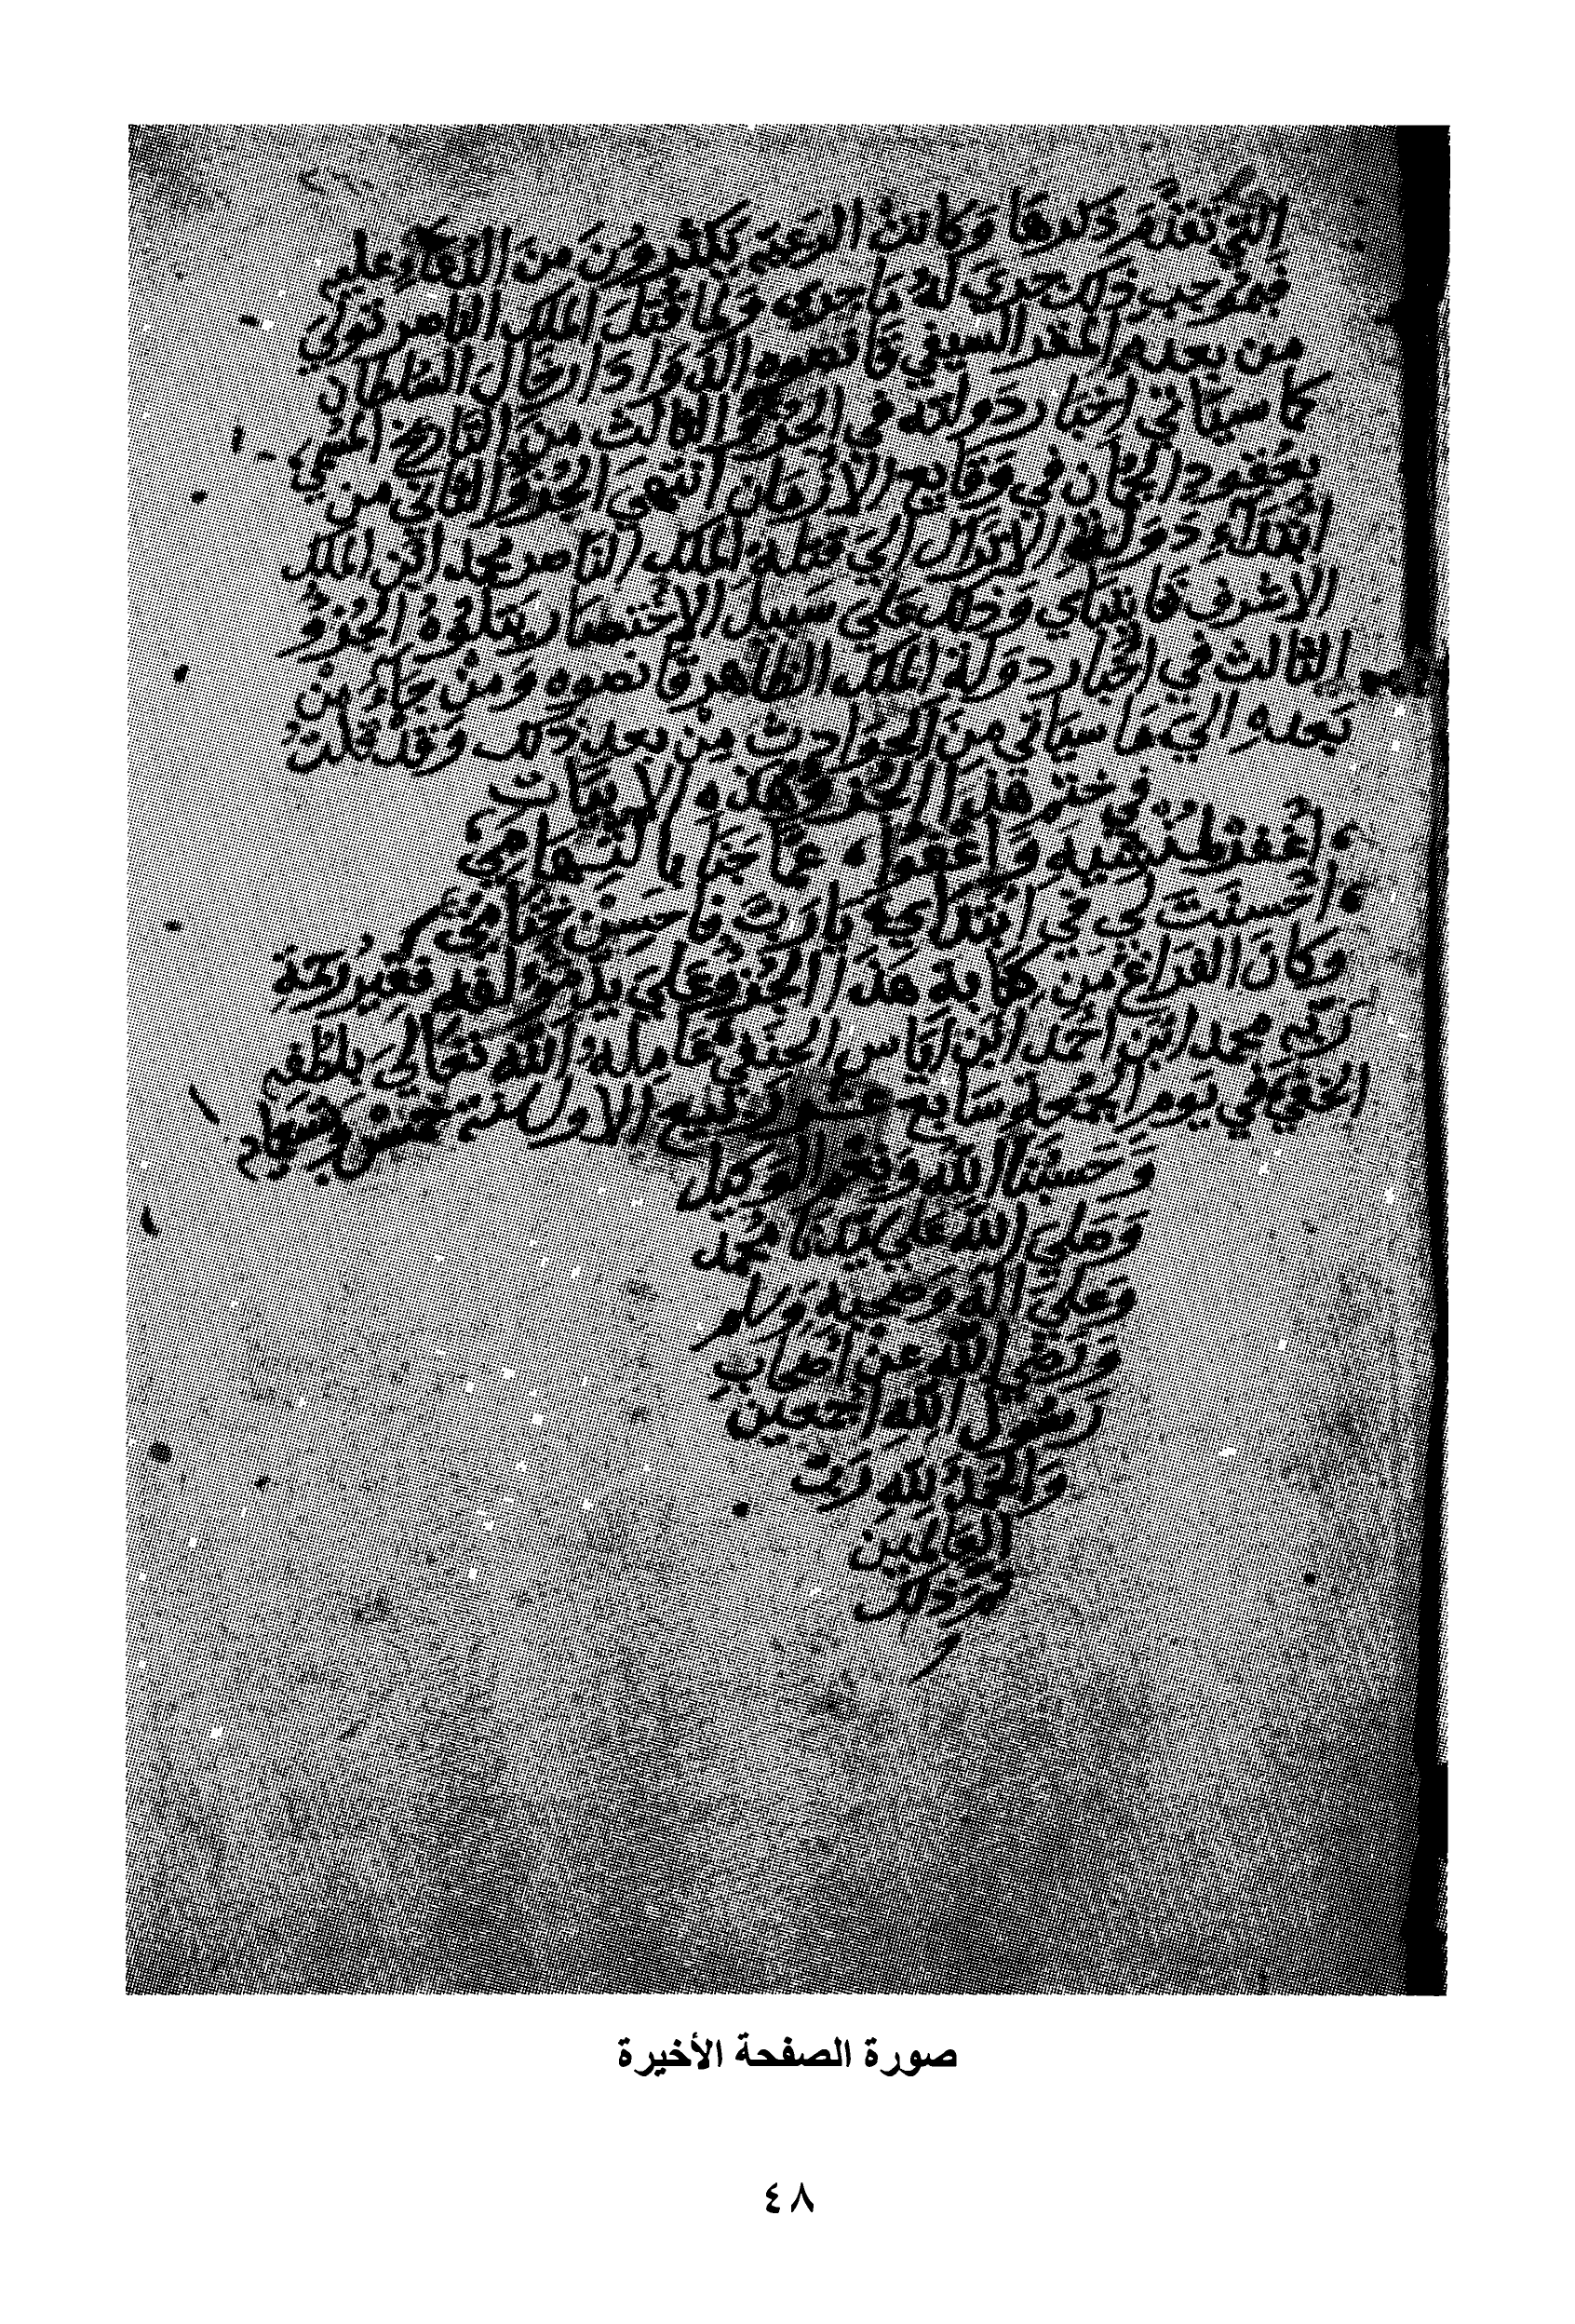 التي تقدم ذكرها وَكانت الرعية يكثرون من الدّعَاءِ عليه
فبموجب ذلك جرَي لهُ مَا جري وَلما قتل الملك الناصر تولي
من بعدهِ المقر السيفي قانصوه الدّوَادَار خَال السُلطان
كما سيَأتي اخبَار دَولته في الجزؤ الثالث من التاريخ المسْمي
بعُقود الجمَان في وَقايع الازمَان انتهيَ الجُزؤ الثاني من
ابتدَآءِ دَوَلة الاتراك اليَ قتلة الملك الناصر محمد ابن الملك
الاشرف قايتبَاي وَذلك عَليَ سَبيل الاِختصَار يَتلوُهُ الجُزؤُ
الثالث في اخبَار دولة الملك الظاهر قانصوه وَمنْ جَآءَ مِنْ
بَعدهِ الي مَا سيَاتي منَ الحوَادث مِنْ بعد ذَلك وَقدْ قلتُ
في ختم هَذا الجُزؤ هَذه الابيَات
اغفرْ لمُنشيه وَاعْفوُا عمّا جَنَا بالتهَامِي
احْسنتَ لي في ابْتدَاي يَا رَبّ فاحسِنْ خِتَامِي
وَكانَ الفرَاغ مْن كتابة هَذَا الجُزؤ عَليَ يَد مؤلفه فقيرُ رَحْمةِ
رَبّه محمد ابْن احْمَد ابْن ايَاس الحنفي عَامِلهُ الله تعَاليَ بلطفهِ
الخفي في يَوم الجُمعَةِ سَابع عشر رَبيع الاول سنة خمسْ وَتسعمَاية
وَحَسبُنَا الله وَنِعْم الوَكيل
وَصَليَ الله عَلي سَيدنَا مُحمَد
وَعَليَ اله وَصَحبِه وَسلم
وَرَضيَ الله عن اصْحَابِ
رَسُول اللهِ اجْمَعين
وَالحمَدُ للهِ رَبّ
العَالمين
تم ذلك
صورة الصفحة الأخيرة
٤٨